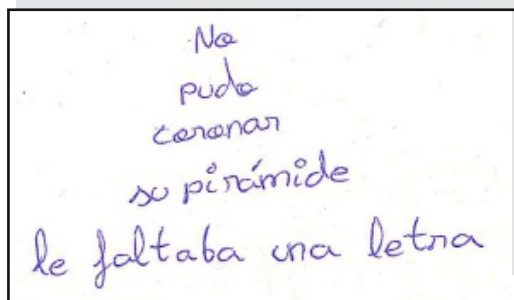 No
pudo
coronar
su pirámide
le faltaba una letra